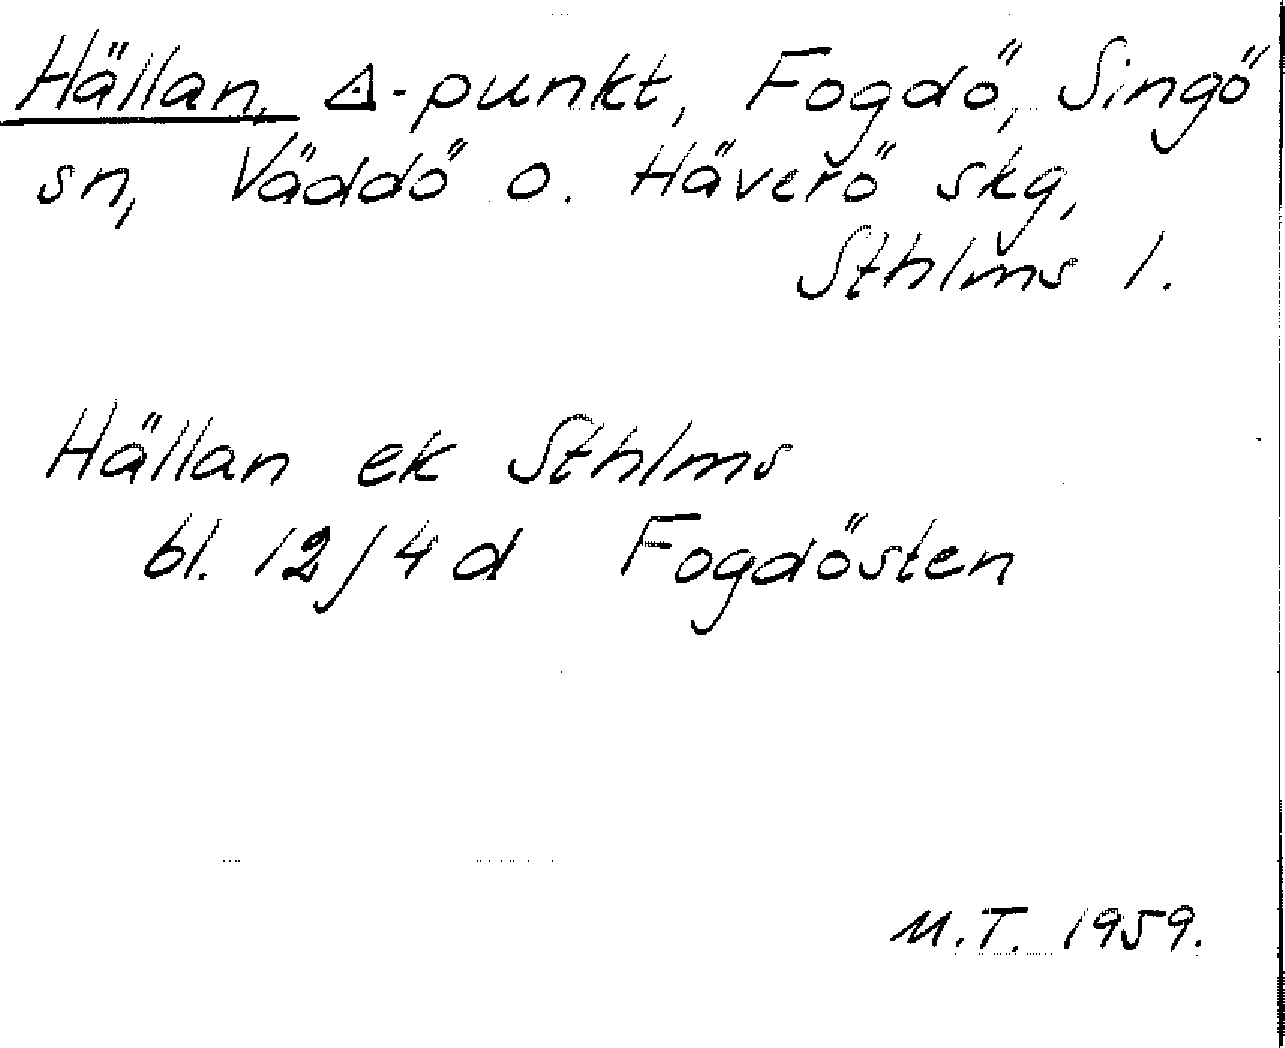 Hällan, △-punkt, Fogdö, Singö
sn, Väddö o. Häverö skg,
Sthlms l.
Hällan ek Sthlms
bl. 12/4d Fogdösten
M.T. 1959.